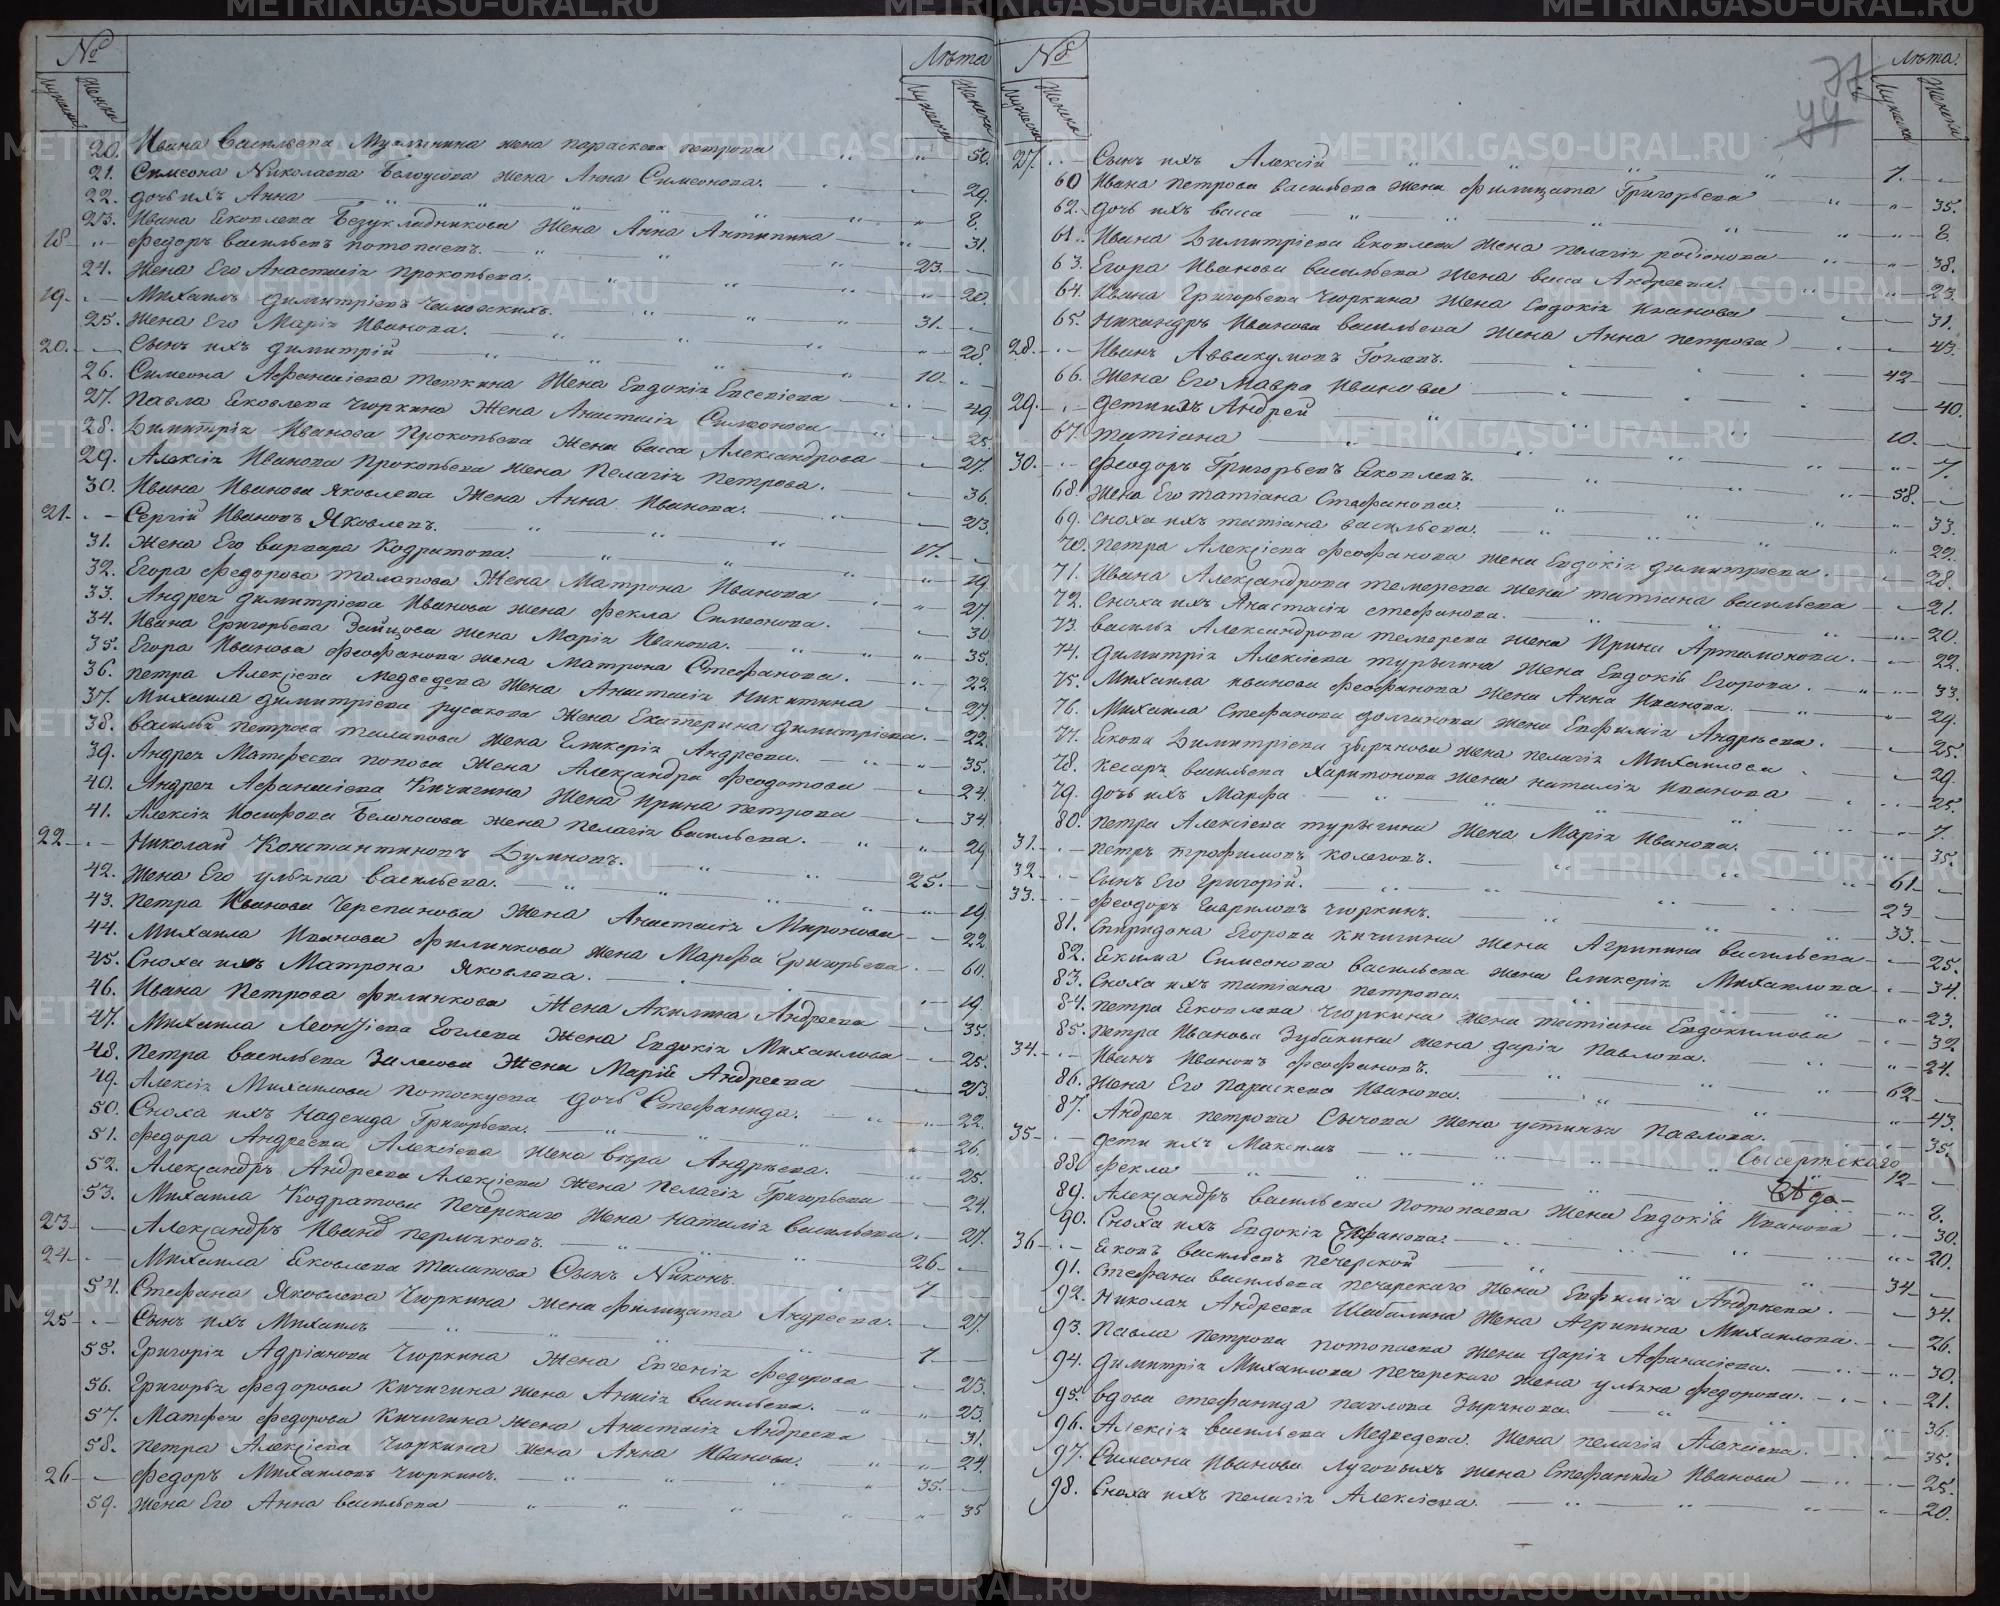 № Лѣта
Мужеска Женска Мужеска Женска
20. Ивана Васильева жена Параскева Петрова 50.
21. Симеона Николаева Белоусова жена Анна Симеонова. 29.
22. дочь ихъ Анна 8.
23. Ивана Яковлева Безукладникова Жена Анна Антипина 31.
18 Федоръ Васильевъ Потопаевъ. 23.
24. Жена Его Анастасія Прокопьева. 20.
19. Михаилъ Димитріевъ 31.
25. Жена Его Марія Иванова. 28.
20. Сынъ ихъ Димитрій 10.
26. Симеона Афанасіева Теткина Жена Евдокія Евсевіева 49.
27. Павла Яковлева Чюркина Жена Анастасія Симеонова 25.
28. Димитрія Иванова Прокопьева Жена Васса Александрова 27.
29. Алексія Иванова Прокопьева Жена Пелагія Петрова. 36.
30. Ивана Иванова Яковлева Жена Анна Иванова. 23.
21. Сергій Ивановъ Яковлевъ. 17.
31. Жена Его Варвара Кодратова. 19
32. Егора Федорова Талапова Жена Матрона Иванова 27.
33. Андрея Димитріева Иванова жена Фекла Симеонова. 30
34. Ивана Григорьева Зайцова жена Марія Иванова. 35.
35. Егора Иванова Феофанова жена Матрона Стефанова. 22
36. Петра Алексіева Медведева Жена Анастасія Никитина 27.
37. Михаила Димитріева Русакова Жена Екатерина Димитріева. 22.
38. Василья Петрова Талапова Жена Гликерія Андреева. 35.
39. Андрея Матфеева Попова Жена Александра Феодотова 24.
40. Андрея Афанасіева Кичигина Жена Ирина Петрова 34.
41. Алексія Иосифова Белоносова жена Пелагія Васильева. 29
22. Николай Константиновъ Думновъ. 25.
42. Жена Его Ульяна Васильева. 19
43. Петра Иванова Черепанова Жена Анастасія Миронова 22
44. Михаила Иванова Филинкова жена Марфа Григорьева. 60.
45. Сноха ихъ Матрона Яковлева. 19.
46. Ивана Петрова Филинкова Жена Акилина Андреева 35.
47. Михаила Леонтіева Гоглева Жена Евдокія Михаилова 25.
48. Петра Васильева Жена Марій Андреева 23.
49. Алексія Михаилова Потоскуева дочь Стефанида. 22.
50. Сноха ихъ Надежда Григорьева. 26.
51. Федора Андреева Алексіева Жена Вѣра Андрѣева. 25.
52. Александръ Андреева Алексіева Жена Пелагія Григорьева 24.
53. Михаила Кодратова Печерскаго Жена Наталія Васильева. 27.
23 Александръ Иванд Пермяковъ. 26.
24. Михаила Яковлева Талапова Сынъ Никонъ. 7
54. Стефана Яковлева Чюркина жена Филицата Андреева. 27.
25 Сынъ ихъ Михаилъ 7.
55. Григорія Адріанова Чюркина Жена Евгенія Федорова 23.
56. Григорья Федорова Кичигина жена Анисія Васильева. 23.
57. Матфея Федорова Кичигина жена Анастасія Андреева 31.
58. Петра Алексіева Чюркина жена Анна Иванова. 24.
26 Федоръ Михаиловъ Чюркинъ. 35.
59. Жена Его Анна Васильева 35
№ Лѣта.
Мужеска Женска Мужеска Женска
27. Сынъ ихъ Алексій 7.
60 Ивана Петрова Васильева Жена Филицата Григорьева 35.
62. дочь ихъ Васса 8.
61. Ивана Димитріева Яковлева Жена Пелагія Родіонова 38.
63. Егора Иванова Васильева Жена Васса Андреева. 23.
64. Ивана Григорьева Чюркина Жена Евдокія Иванова 31.
65. Никандръ Иванова Васильева Жена Анна Петрова 43.
28. Иванъ Аввакумовъ Гоглевъ. 42
66. Жена Его Мавра Иванова 40.
29. дети ихъ Андрей 10.
67. Татіана 7.
30. Феодоръ Григорьевъ Яковлевъ. 58.
68. Жена Его Татіана Стефанова. 33.
69. Сноха ихъ Татіана Васильева. 22.
70. Петра Алексіева Феофанова жена Евдокія Димитріева. 28.
71. Ивана Александрова Темерева жена Татіана Васильева 21.
72. Сноха ихъ Анастасія Стефанова. 20.
73. Василья Александрова Темерева жена Ирина Артамонова. 22.
74. Димитрія Алексіева Турыгина Жена Евдокія Егорова. 33.
75. Михаила Иванова Феофанова Жена Анна Иванова. 29.
76. Михаила Стефанова Долганова жена Евфимія Андрѣева. 25.
77. Якова Димитріева Зырянова жена Пелагія Михаилова 29.
78. Кесаръ Васильева Харитонова Жена Наталія Иванова 25.
79. дочь ихъ Марфа 7.
80. Петра Алексіева Турыгина Жена Марія Иванова. 35.
31. Петръ Трофимовъ Колеговъ. 61.
32. Сынъ Его Григорій. 23
33. Феодоръ Гавриловъ Чюркинъ. 33.
81. Спиридона Егорова Кичигина жена Агрипина Васильева 25.
82. Екима Симеонова Васильева жена Гликерія Михаилова 34.
83. Сноха ихъ Татіана Петрова. 23.
84. Петра Яковлева Чюркина жена Татіана Евдокимова 32
85. Петра Иванова Зубакина жена Дарія Павлова. 24.
34. Иванъ Ивановъ Феофановъ. 62
86. Жена Его Параскева Иванова. 43.
87. Андрея Петрова Сычова жена Устинья Павлова. 35.
35 дети ихъ Максимъ 12
Сысертскаго
88 Фекла 8.
89. Александръ Васильева Потопаева Жена Евдокія Иванова 30.
90. Сноха ихъ Евдокія 20.
36 Яковъ Васильевъ Печерской 34
91. Стефана Васильева Печерскаго Жена Евфимія Андрѣева. 34.
92. Николая Андреева Шабалина Жена Агрипина Михаилова 26.
93. Павла Петрова Потопаева жена Дарія Афанасіева. 30.
94. Димитрія Михаилова Печерскаго жена Ульяна Федорова. 21.
95. вдова Стефанида Павлова Зырянова. 36.
96. Алексія Васильева Медведева. Жена Пелагія Алексіева. 35.
97. Симеона Иванова Луговыхъ жена Стефанида Иванова 25.
98. Сноха ихъ Пелагія Алексіева. 20.
METRIKI.GASO-URAL.RU